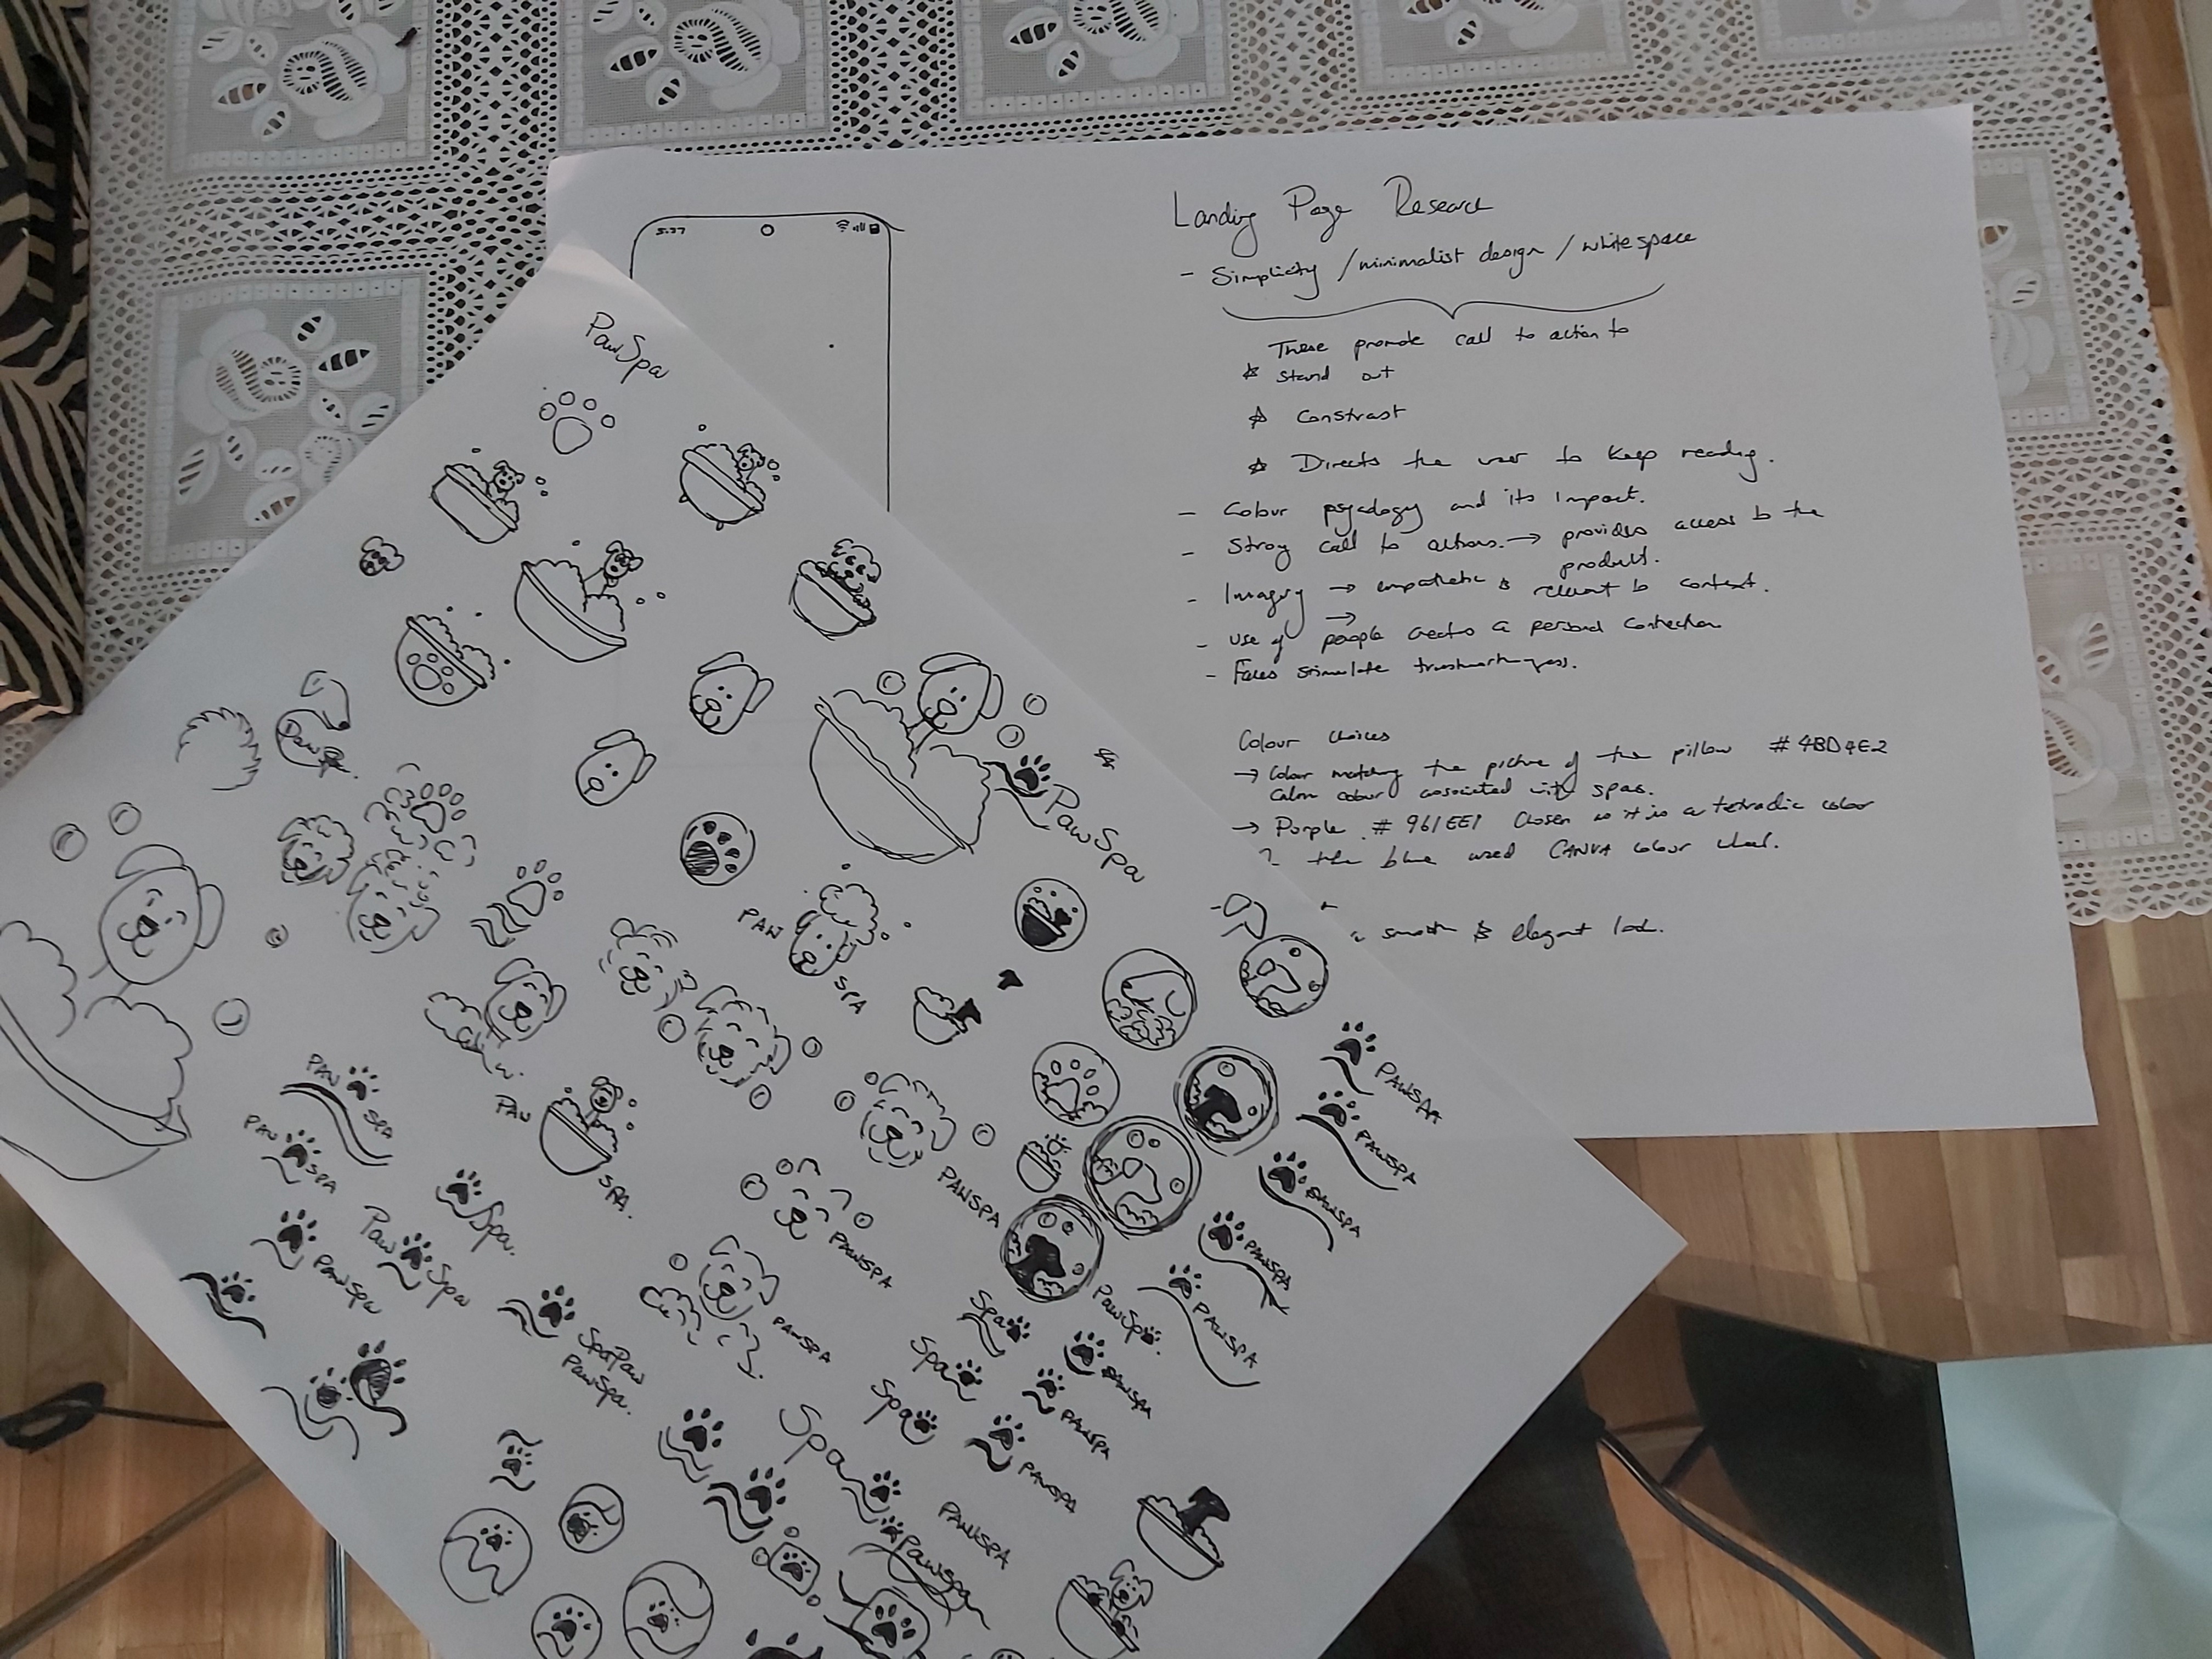 5:37
Landing Page Research
- Simplicity / minimalist design / whitespace
These promote call to action to
☆ stand out
☆ Constrast
☆ Directs the user to keep reading.
- Colour psycology and its impact.
- Strong call to actions. → provides access to the
product.
- Imagery → empathetic & relevant to context.
- Use of → people creates a personal connection
- Faces stimulate trustworthyness.
Colour choices
→ Colour matching the picture of the pillow #4BD4E2
Calm colour associated with spas.
→ Purple #961EE1 Chosen as it is a tetradic color
the blue used CANVA colour wheel.
a smooth & elegant look.
PawSpa
PawSpa
PAW
SPA
PAW
SPA
PAW
SPA
PAW
SPA.
PAWSPA
PAWSPA
PAWSPA
PawSpa
Paw Spa
Spa.
SpaPaw
PawSpa.
PAWSPA
PAWSPA
PAWSPA
PAWSPA
PAWSPA
PAWSPA
PawSp
Spa
Spa
Spa
Spa
PAWSPA
PAWSPA
PAWSPA
PAWSPA
Pawspa